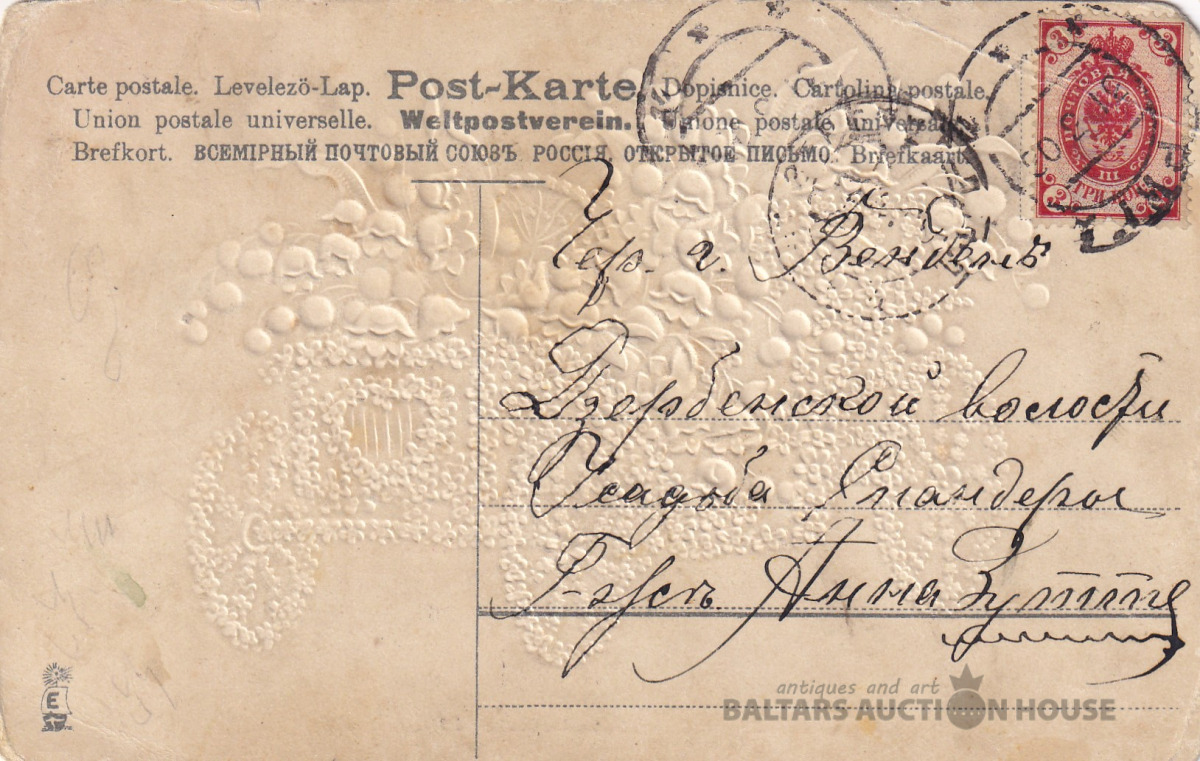 Carte postale. Levelezö-Lap. Post-Karte. Dopisnice. Cartolina postale.
Union postale universelle. Weltpostverein. Unione postale universale.
Brefkort. ВСЕМІРНЫЙ ПОЧТОВЫЙ СОЮЗЪ РОССІЯ. ОТКРЫТОЕ ПИСЬМО. Briefkaart.
Чер. г. Венденъ
Дзербенской волости
Усадьба Скандеры
Г-жѣ Анна
E
antiques and art
BALTARS AUCTION HOUSE